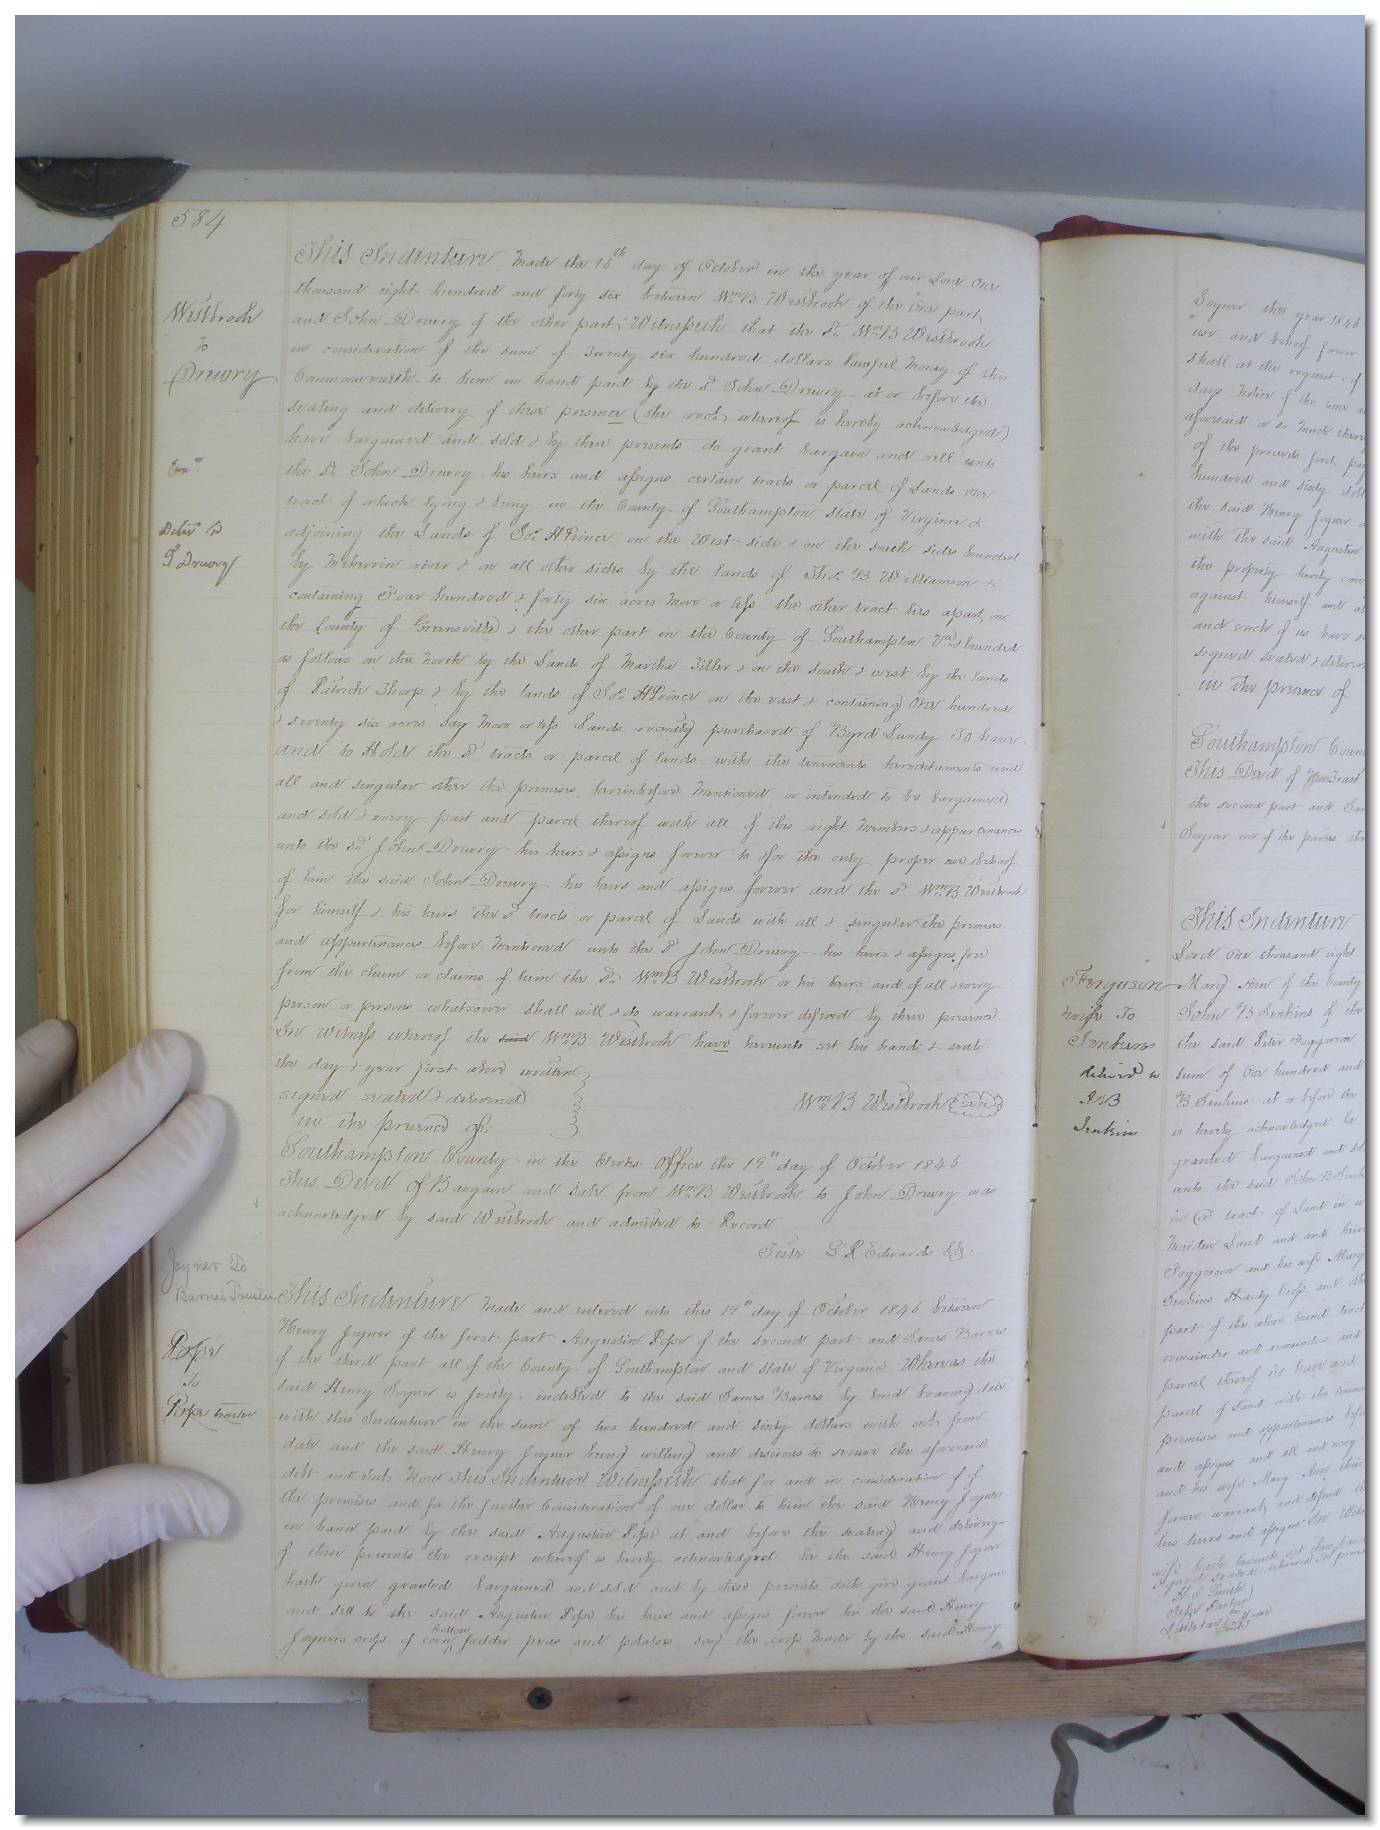 584
This Indenture Made the 16th day of October in the year of our Lord One
thousand eight hundred and forty six between Wm B Westbrook of the One part
and John Drewry of the other part, Witnesseth that the sd Wm B Westbrook
in consideration of the sum of Twenty six hundred dollars lawful Money of this
Commonwealth to him in hand paid by the sd John Drewry at or before the
sealing and delivery of these presence (the rect whereof is hereby acknowledged)
have bargained and sold & by these presents do grant bargain and sell unto
the sd John Drewry his heirs and assigns certain tracts or parcel of Lands one
tract of which lying & being in the County of Southampton State of Virginia &
adjoining the Lands of Jos H Prince on the West side & on the south side bounded
by Meherrin river & on all other sides by the lands of Thos B Williamson &
containing Four hundred & forty six acres More or less the other tract lies apart in
the County of Greensville & the other part in the County of Southampton Va & bounded
as follows on the North by the Lands of Martha Tiller & on the South & west by the lands
of Patrick Tharp & by the lands of Jos H Prince on the east & containing One hundred
& seventy six acres say More or less Lands recently purchased of Byrd Lundy To have
and to Hold the sd tracts or parcel of lands with the tenements hereditaments and
all and singular other the premises hereinbefore Mentioned or intended to be bargained
and sold & every part and parcel thereof with all of the right Members & appurtenances
unto the sd John Drewry his heirs & assigns forever to & for the only proper use & behoof
of him the said John Drewry his heirs and assigns forever and the sd Wm B Westbrook
for himself & his heirs the sd tracts or parcel of Lands with all & singular the premises
and appurtenances before Mentioned unto the sd John Drewry his heirs & assigns free
from the claim or claims of him the sd Wm B Westbrook or his heirs and of all & every
person or persons whatsoever Shall will & do warrant & forever defend by these presence
In Witness whereof the said Wm B Westbrook have hereunto set his hand & seal
the day & year first above written
signed sealed & delivered
in the presence of
Wm B Westbrook (Seal)
Southampton County in the Clerks Office the 19th day of October 1846
This Deed of Bargain and Sale from Wm B Westbrook to John Drewry was
acknowledged by said Westbrook and admitted to Record
Teste L R Edwards Clk
This Indenture Made and entered into this 19th day of October 1846 between
Henry Joyner of the first part Augustin Pope of the second part and James Barnes
of the third part all of the County of Southampton and State of Virginia Whereas the
said Henry Joyner is justly indebted to the said James Barnes by bond bearing date
with this Indenture in the sum of two hundred and Sixty dollars with int from
date and the said Henry Joyner being willing and desirous to secure the aforesaid
debt and Int Now This Indenture Witnesseth that for and in consideration of
the premises and for the further Consideration of one dollar to him the said Henry Joyner
in hand paid by the said Augustin Pope at and before the sealing and delivery
of these presents the receipt whereof is hereby acknowledged he the said Henry Joyner
hath given granted bargained and sold and by these presents doth give grant bargain
and sell to the said Augustin Pope his heirs and assigns forever he the said Henry
Joyners crop of corn cotton fodder peas and potatoes say the crop Made by the said Henry
Westbrook
To
Drewry
Exd
Delivd to
J Drewry
Joyner To
Barnes Trustee
Pope
To
Pope trustee
Joyner this year 1846
use and behoof forever
shall at the request of
days notice of the time
aforesaid or so much there
of the proceeds first pay
hundred and sixty doll
the said Henry Joyner
with the said Augustin
the property hereby con
against himself and
and each of us have
signed sealed & deliver
in the presence of
Southampton Coun
This Deed of Trust
the second part and Ja
Joyner one of the parties the
This Indenture
Lord One thousand eight
Mary Ann of the County
John B Jenkins of the
the said Peter Fugerson
sum of One hundred and
B Jenkins at or before the
is hereby acknowledged he
granted bargained and sol
unto the said John B Jenk
in a tract of Land in
Maiden Land and and
Foggerson and his wife Mary
Jenkins Hardy Crop and
part of the above tract
remainder and remainders and
parcel thereof To have and
parcel of Land with the tenem
premises and appurtenances bef
and assigns and all and
and his wife Mary Ann their
forever warrant and defend
his heirs and assigns In Witn
wife hath hereunto set
signed sealed & delivered in pres
Ferguson
wife To
Jenkins
deliverd to
J B
Jenkins